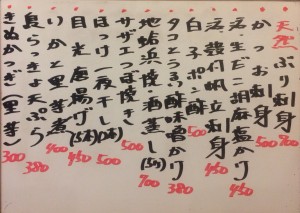 天然ぶり刺身 800
かつお刺身 500
活・生だこ胡麻塩かり 450
活・殻付帆立刺身 450
白子ポン酢 500
タコとうるい酢味噌かけ 380
地蛤浜焼・酒蒸し(5ヶ) 700
サザエつぼ焼き 500
ほっけ一夜干し 500
目光唐揚げ(5本) 450
いかと里芋煮 400
島らっきょ天ぷら 380
きぬかつぎ(里芋) 300